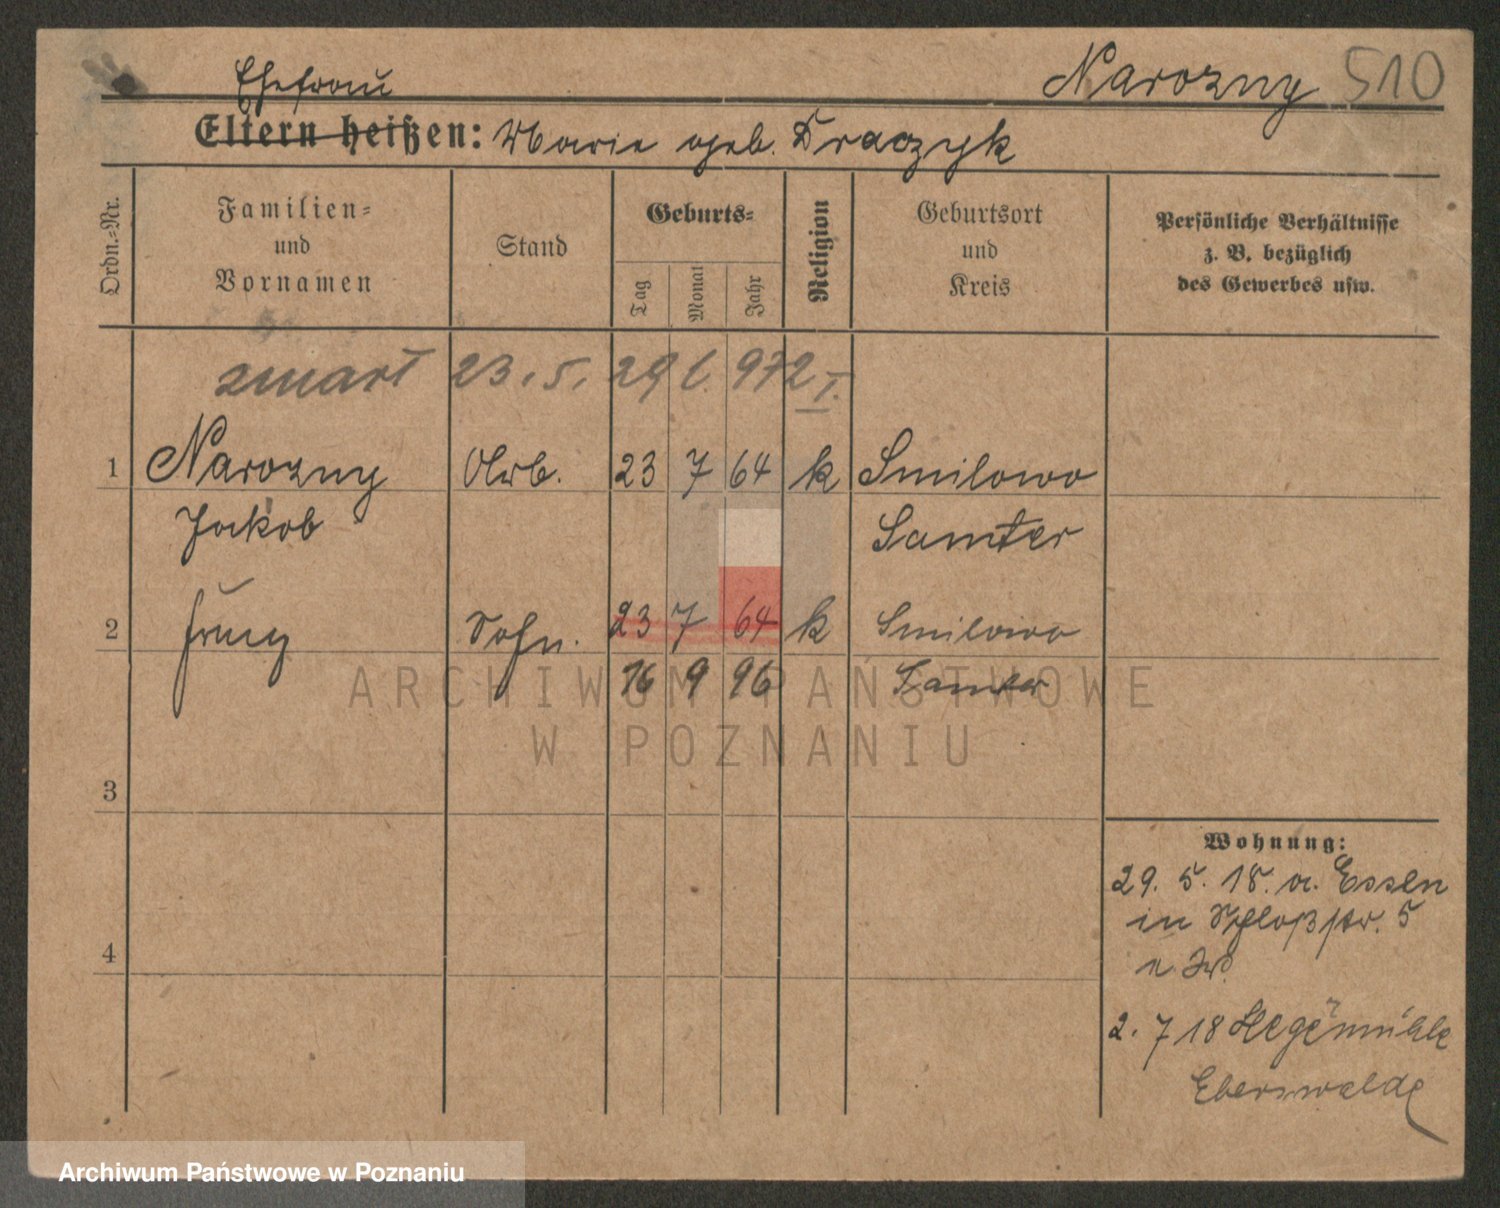 Ehefrau Narozny 510
Eltern heißen: Marie geb. Draczyk
Ordn.=Nr.
Familien=
und
Vornamen
Stand
Geburts=
Tag
Monat
Jahr
Religion
Geburtsort
und
Kreis
Persönliche Verhältnisse
z. B. bezüglich
des Gewerbes usw.
zmarł 23.5.29
1 Narozny Arb. 23 7 64 k Smilowo
Jakob Samter
2 Franz Sohn. 23 7 64 k Smilowo
16 9 96 Samter
3
4
Wohnung:
29. 5. 18. a. Essen
in Schloßstr. 5
2. 7 18 Hegermühle
Eberswalde
ARCHIWUM PAŃSTWOWE
W POZNANIU
Archiwum Państwowe w Poznaniu